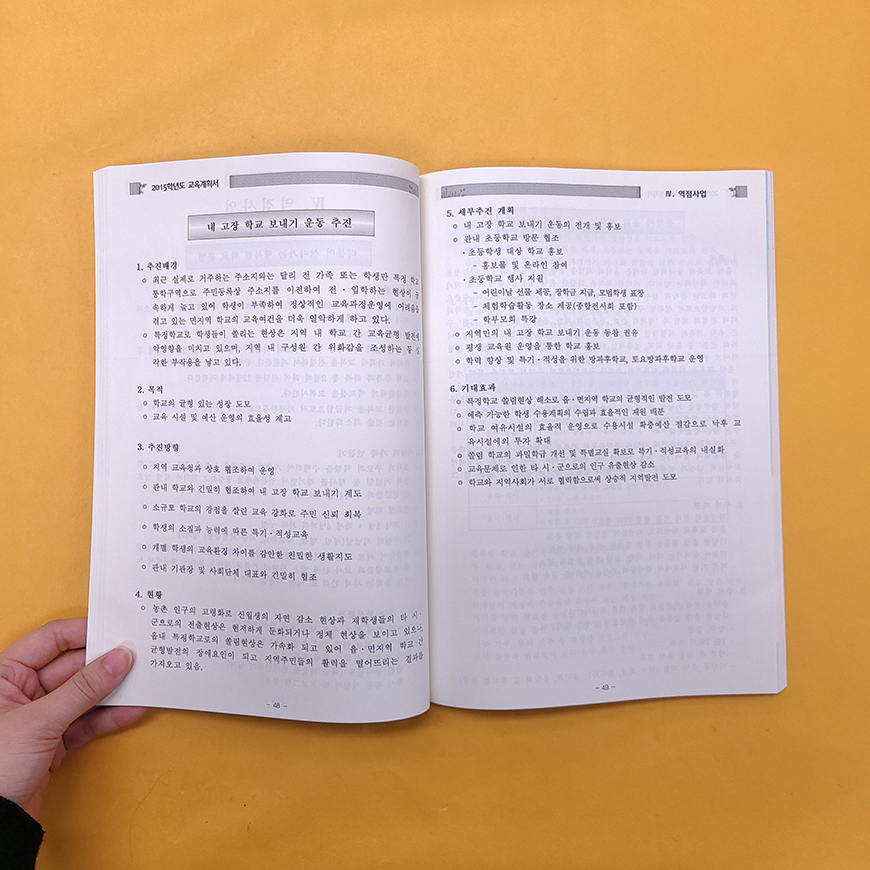 2015학년도 교육계획서
내 고장 학교 보내기 운동 추진
1. 추진배경
○ 최근 실제로 거주하는 주소지와는 달리 전 가족 또는 학생만 특정 학교
통학구역으로 주민등록상 주소지를 이전하여 전·입학하는 현상이 급
속하게 늘고 있어 학생이 부족하여 정상적인 교육과정운영에 어려움을
겪고 있는 면지역 학교의 교육여건을 더욱 열악하게 하고 있다.
○ 특정학교로 학생들이 쏠리는 현상은 지역 내 학교 간 교육균형 발전에
악영향을 미치고 있으며, 지역 내 구성원 간 위화감을 조성하는 등 심
각한 부작용을 낳고 있다.
2. 목적
○ 학교의 균형 있는 성장 도모
○ 교육 시설 및 예산 운영의 효율성 제고
3. 추진방향
○ 지역 교육청과 상호 협조하여 운영
○ 관내 학교와 긴밀히 협조하여 내 고장 학교 보내기 계도
○ 소규모 학교의 강점을 살린 교육 강화로 주민 신뢰 회복
○ 학생의 소질과 능력에 따른 특기·적성교육
○ 개별 학생의 교육환경 차이를 감안한 친밀한 생활지도
○ 관내 기관장 및 사회단체 대표와 긴밀히 협조
4. 현황
○ 농촌 인구의 고령화로 신입생의 자연 감소 현상과 재학생들의 타 시·
군으로의 전출현상은 현저하게 둔화되거나 정체 현상을 보이고 있으나,
읍내 특정학교로의 쏠림현상은 가속화 되고 있어 읍·면지역 학교 간
균형발전의 장애요인이 되고 지역주민들의 활력을 떨어뜨리는 결과를
가져오고 있음.
- 48 -
Ⅳ. 역점사업
5. 세부추진 계획
○ 내 고장 학교 보내기 운동의 전개 및 홍보
○ 관내 초등학교 방문 협조
·초등학생 대상 학교 홍보
- 홍보물 및 온라인 참여
·초등학교 행사 지원
- 어린이날 선물 제공, 장학금 지급, 모범학생 표창
- 체험학습활동 장소 제공(종합전시회 포함)
- 학부모회 특강
○ 지역민의 내 고장 학교 보내기 운동 동참 권유
○ 평생 교육원 운영을 통한 학교 홍보
○ 학력 향상 및 특기·적성을 위한 방과후학교, 토요방과후학교 운영
6. 기대효과
○ 특정학교 쏠림현상 해소로 읍·면지역 학교의 균형적인 발전 도모
○ 예측 가능한 학생 수용계획의 수립과 효율적인 재원 배분
○ 학교 여유시설의 효율적 운영으로 수용시설 확충예산 절감으로 낙후 교
육시설에의 투자 확대
○ 쏠림 학교의 과밀학급 개선 및 특별교실 확보로 특기·적성교육의 내실화
○ 교육문제로 인한 타 시·군으로의 인구 유출현상 감소
○ 학교와 지역사회가 서로 협력함으로써 상승적 지역발전 도모
- 49 -